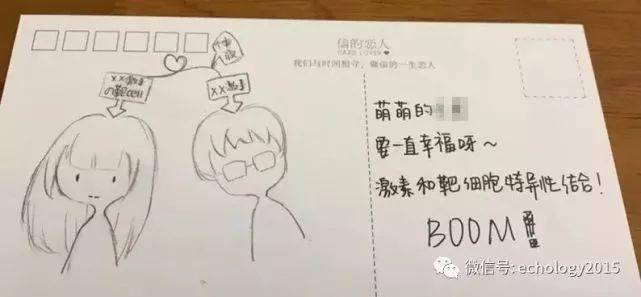 信的恋人
CARD LOVER
我们与时间相守，做信的一生恋人
体液
XX激素
の靶cell
XX激素
萌萌的
要一直幸福呀～
激素和靶细胞特异性结合！
BOOM
微信号: echology2015